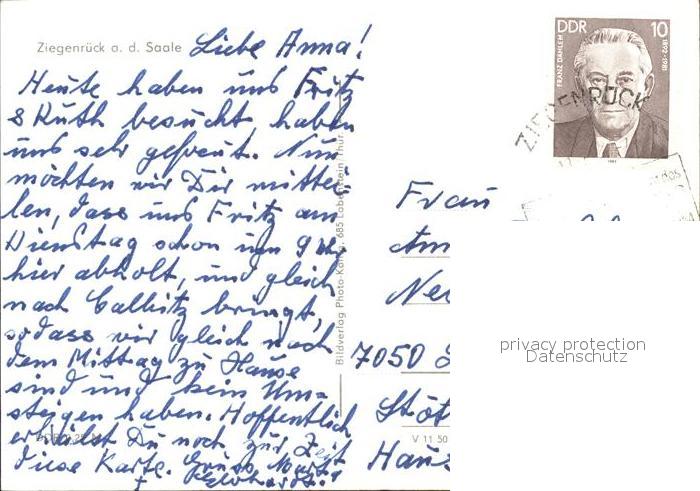 Ziegenrück a. d. Saale
Liebe Anna!
Heute haben uns Fritz
& Ruth besucht, haben
uns sehr gefreut. Nun
möchten wir Dir mittei-
len, dass uns Fritz am
Dienstag schon um 9 Uhr
hier abholt, und gleich
nach bringt,
sodass wir gleich nach
dem Mittag zu Hause
sind und kein Um-
steigen haben. Hoffentlich
erhälst Du noch zur Zeit
diese Karte. Gruss
Bildverlag Photo-König, 685 Lobenstein/Thür.
V 11 50
DDR 10
FRANZ DAHLEM 1892-1981
ZIEGENRÜCK
Frau
7050
privacy protection
Datenschutz